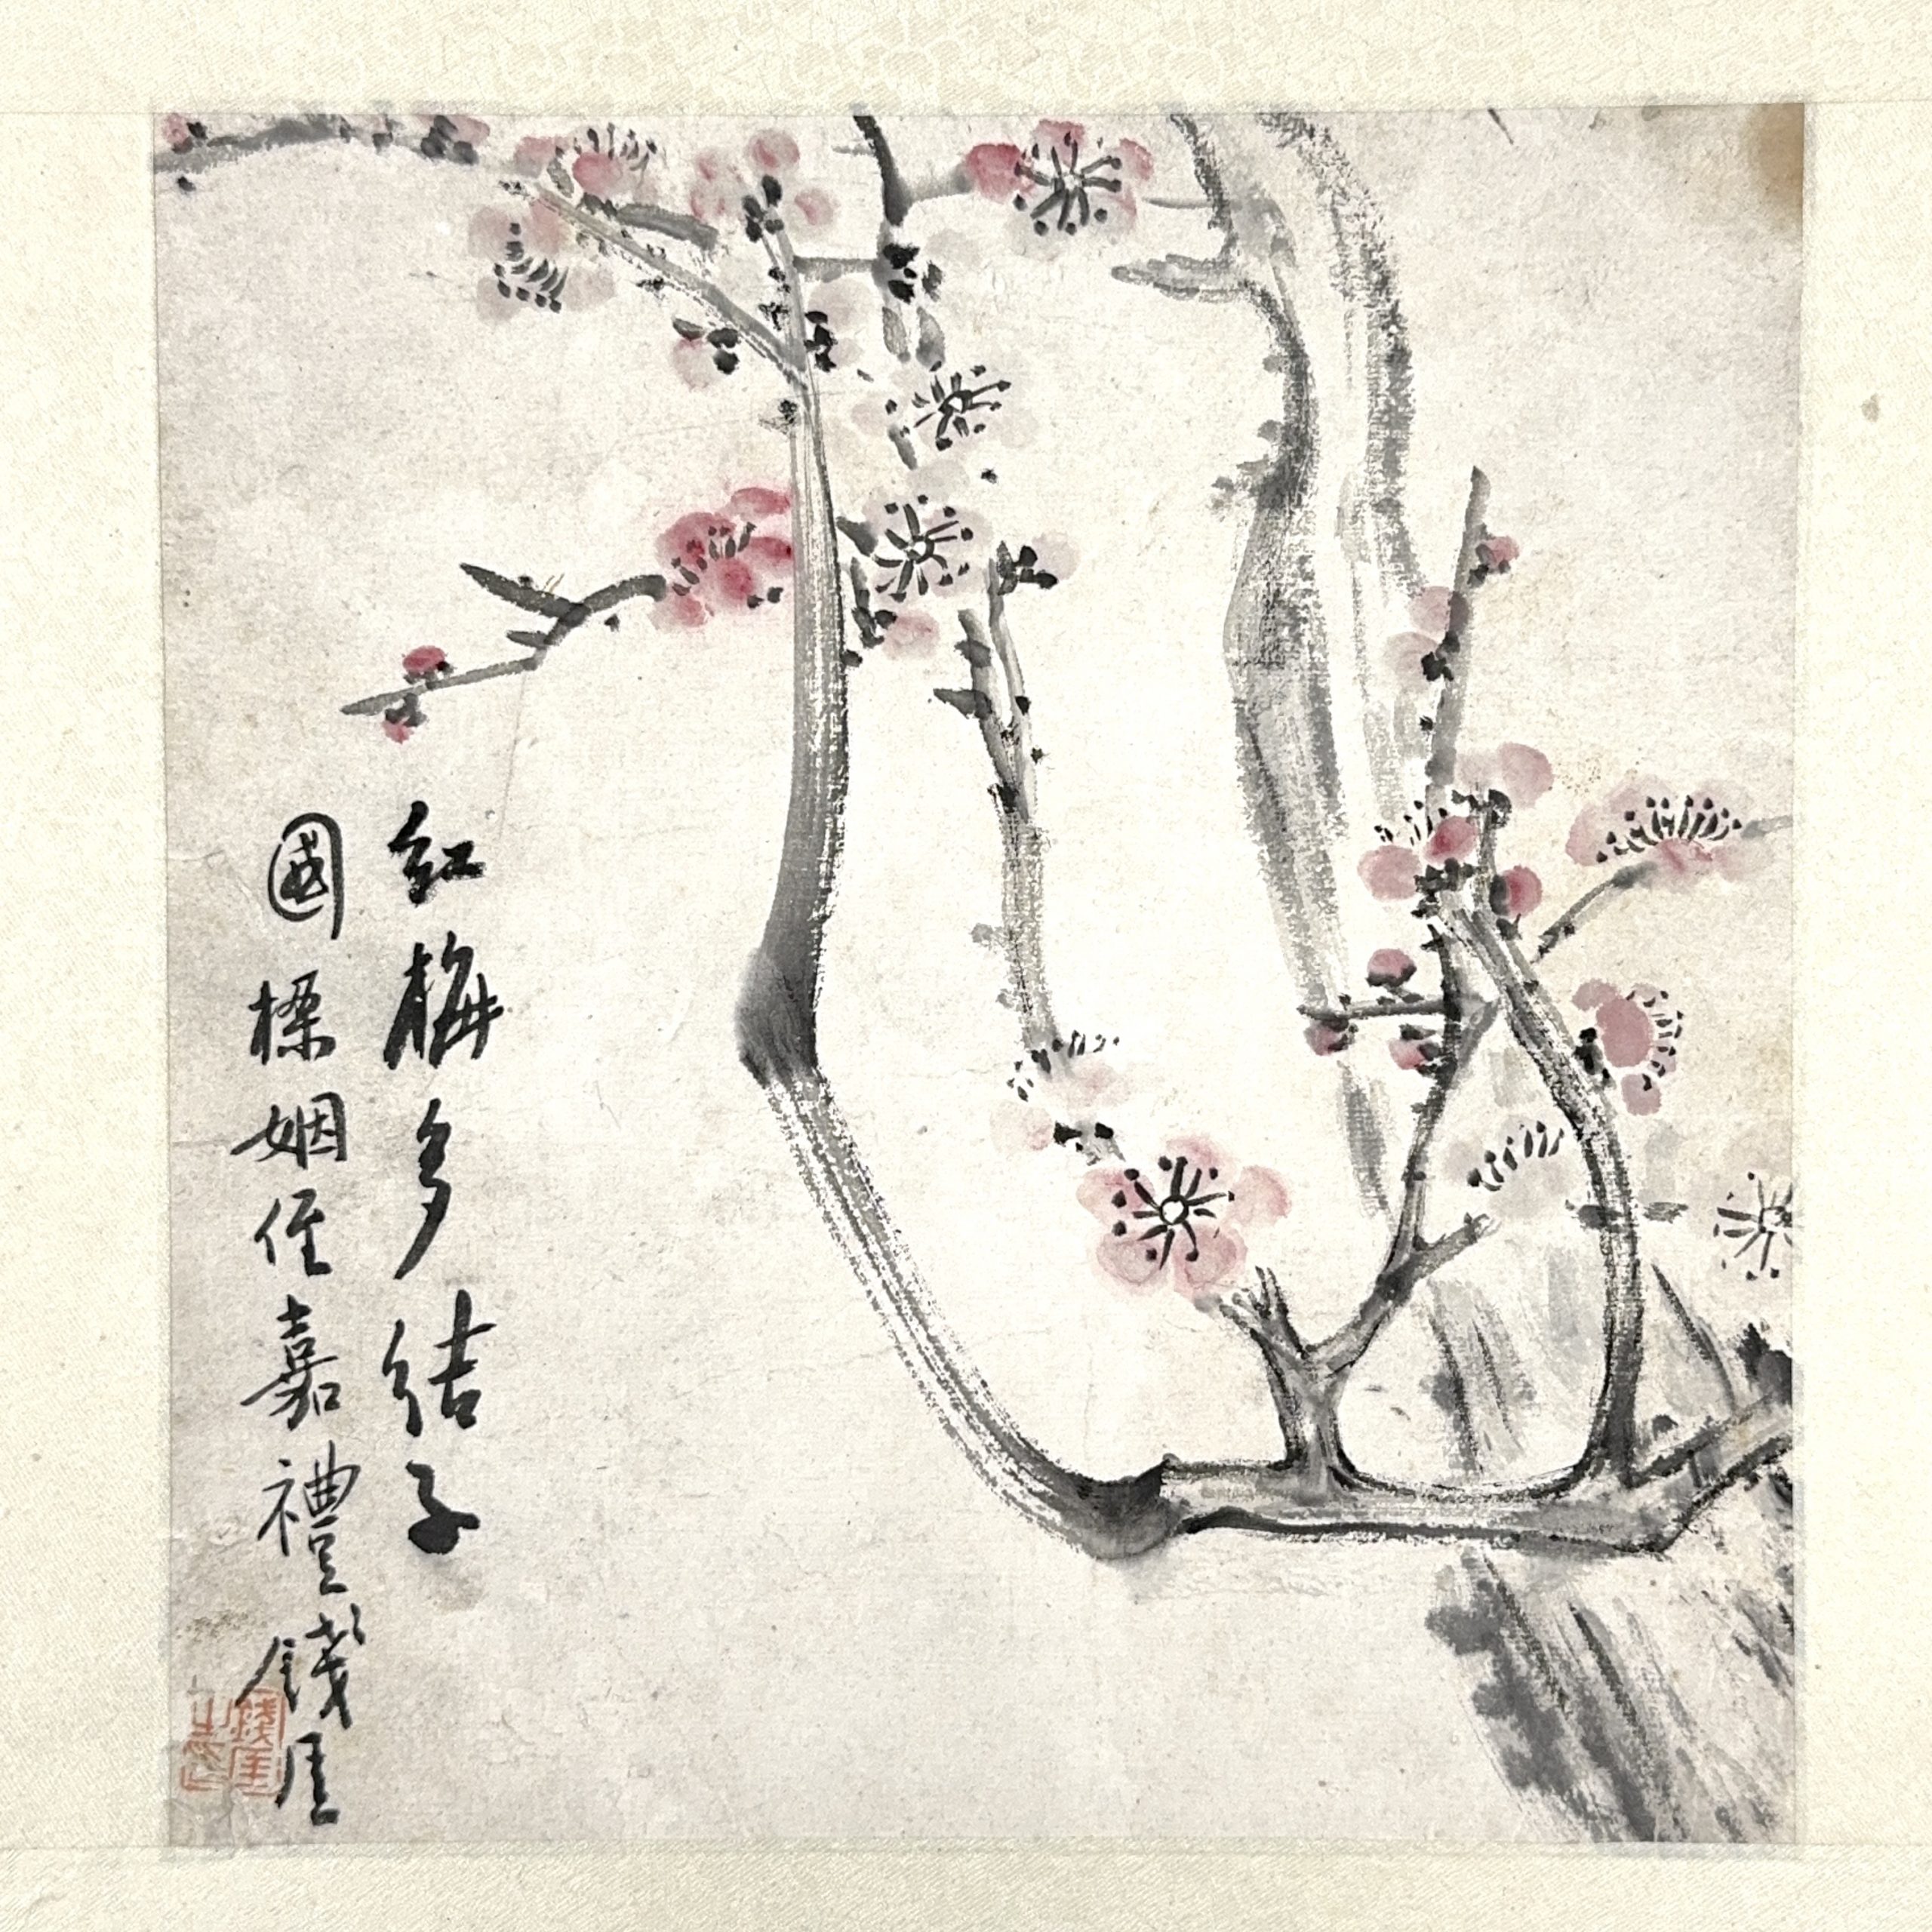 紅梅多結子
國標姻侄嘉禮錢厓
錢厓